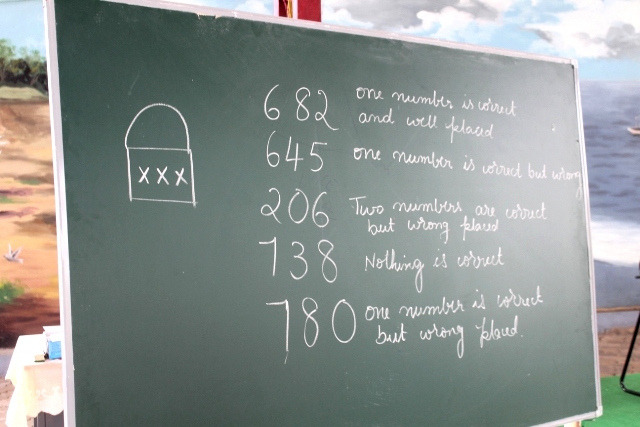 682 one number is correct
and well placed
XXX
645 one number is correct but wrong
206 Two numbers are correct
but wrong placed
738 Nothing is correct
780 one number is correct
but wrong placed.